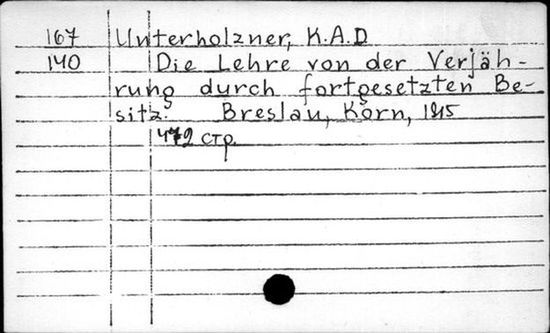 167 Unterholzner, K.A.D
140 Die Lehre von der Verjäh-
rung durch fortgesetzten Be-
sitz. Breslau, Korn, 1815
472 стр.